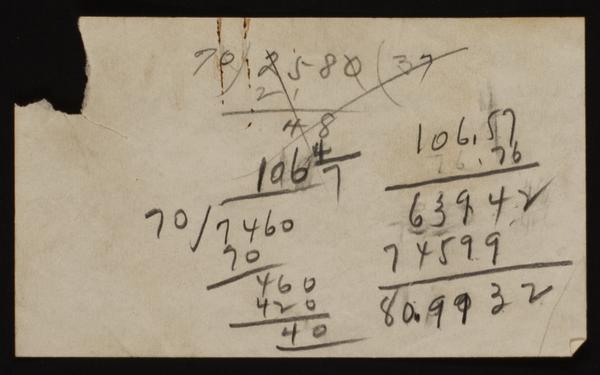 70) 2580 (37
21
48
106 4/7
70/7460
70
460
420
40
106.57
.76
63942
74599
80.9932